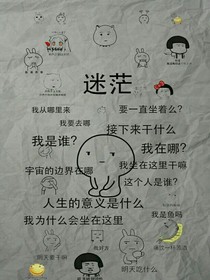 迷茫
我从哪里来
要一直坐着么?
我要去哪
接下来干什么
我是谁?
我在哪?
我坐在这里干嘛
宇宙的边界在哪
这个人是谁?
人生的意义是什么
我为什么会坐在这里
我是鱼吗
明天要干嘛
明天吃什么